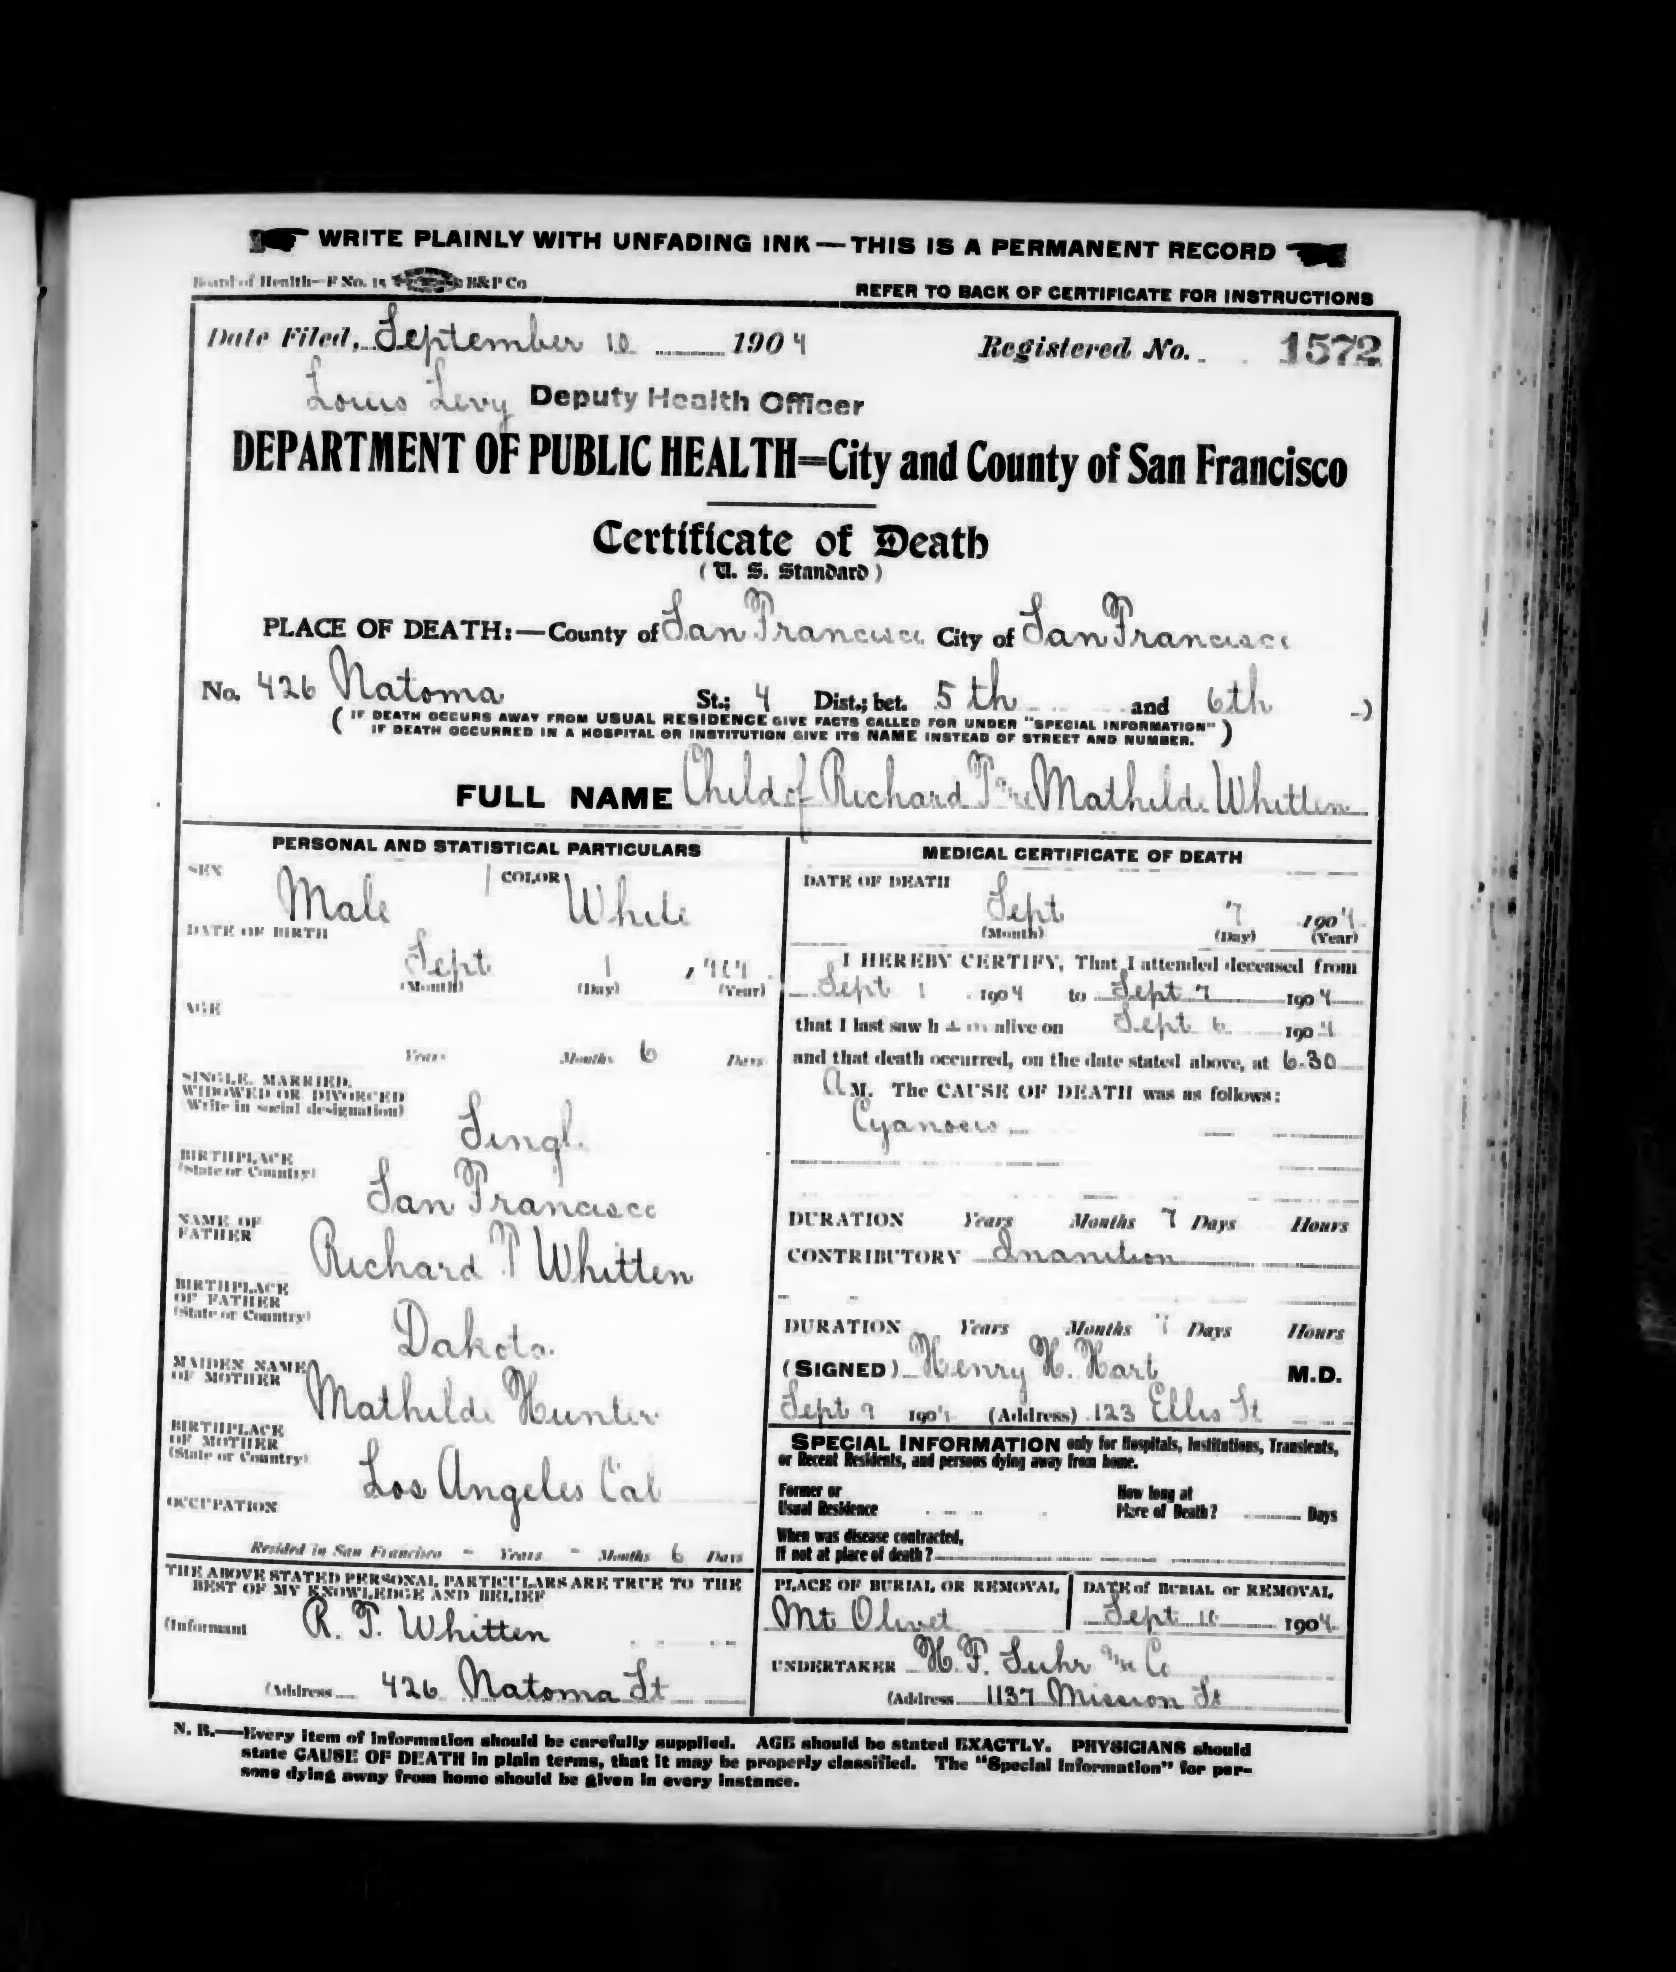 WRITE PLAINLY WITH UNFADING INK — THIS IS A PERMANENT RECORD
Board of Health—F No. 15 B&P Co
REFER TO BACK OF CERTIFICATE FOR INSTRUCTIONS
Date Filed, September 10 1904 Registered No. 1572
Louis Levy Deputy Health Officer
DEPARTMENT OF PUBLIC HEALTH=City and County of San Francisco
Certificate of Death
( U. S. Standard )
PLACE OF DEATH:—County of San Francisco City of San Francisco
No. 426 Natoma St.; 4 Dist.; bet. 5th and 6th )
( IF DEATH OCCURS AWAY FROM USUAL RESIDENCE GIVE FACTS CALLED FOR UNDER "SPECIAL INFORMATION"
IF DEATH OCCURRED IN A HOSPITAL OR INSTITUTION GIVE ITS NAME INSTEAD OF STREET AND NUMBER. )
FULL NAME Child of Richard T and Mathilde Whitten
PERSONAL AND STATISTICAL PARTICULARS
SEX Male COLOR White
DATE OF BIRTH
Sept 1 , 904
(Month) (Day) (Year)
AGE
Years Months 6 Days
SINGLE, MARRIED,
WIDOWED OR DIVORCED
(Write in social designation)
Singl
BIRTHPLACE
(State or Country)
San Francisco
NAME OF
FATHER
Richard T Whitten
BIRTHPLACE
OF FATHER
(State or Country)
Dakota
MAIDEN NAME
OF MOTHER
Mathilde Hunter
BIRTHPLACE
OF MOTHER
(State or Country)
Los Angeles Cal
OCCUPATION
Resided in San Francisco - Years - Months 6 Days
THE ABOVE STATED PERSONAL PARTICULARS ARE TRUE TO THE
BEST OF MY KNOWLEDGE AND BELIEF
(Informant R. T. Whitten
(Address 426 Natoma St
MEDICAL CERTIFICATE OF DEATH
DATE OF DEATH
Sept 7 1904
(Month) (Day) (Year)
I HEREBY CERTIFY, That I attended deceased from
Sept 1 1904 to Sept 7 1904
that I last saw h im alive on Sept 6 1904
and that death occurred, on the date stated above, at 6.30
A M. The CAUSE OF DEATH was as follows:
Cyanosis
DURATION Years Months 7 Days Hours
CONTRIBUTORY Inanition
DURATION Years Months 7 Days Hours
(SIGNED) Henry H. Hart M.D.
Sept 9 1904 (Address) 123 Ellis St
SPECIAL INFORMATION only for Hospitals, Institutions, Transients,
or Recent Residents, and persons dying away from home.
Former or
Usual Residence
How long at
Place of Death? Days
When was disease contracted,
If not at place of death?
PLACE OF BURIAL OR REMOVAL
Mt Olivet
DATE of BURIAL or REMOVAL
Sept 10 1904
UNDERTAKER H. F. Suhr and Co
(Address 1137 Mission St
N. B.—Every item of information should be carefully supplied. AGE should be stated EXACTLY. PHYSICIANS should
state CAUSE OF DEATH in plain terms, that it may be properly classified. The "Special Information" for per-
sons dying away from home should be given in every instance.